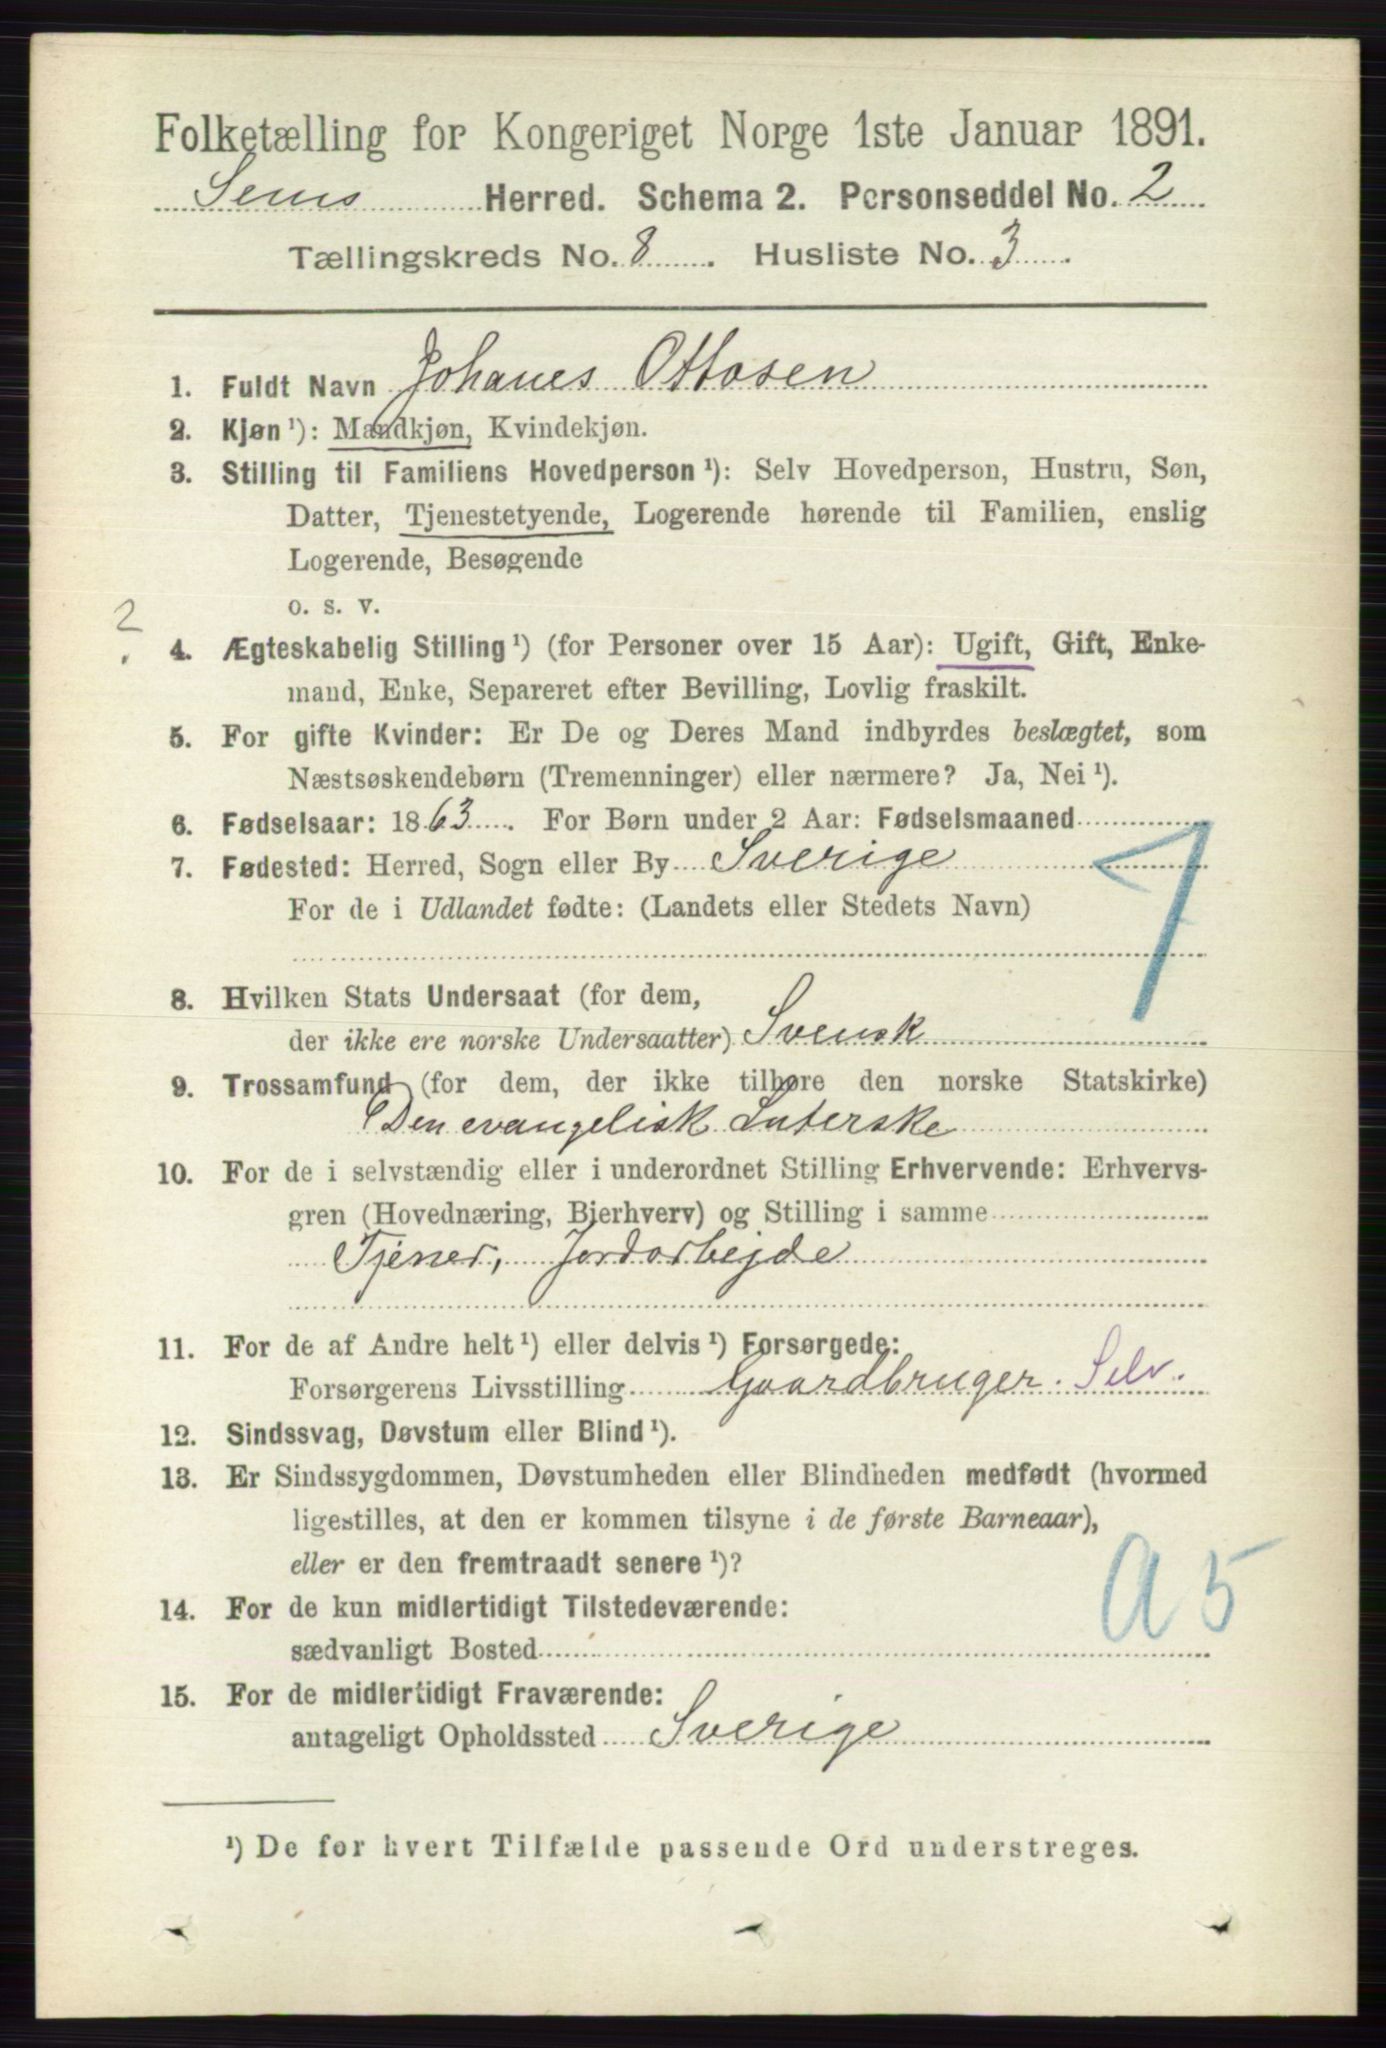 Folketælling for Kongeriget Norge 1ste Januar 1891.
Sems Herred. Schema 2. Personseddel No. 2
Tællingskreds No. 8. Husliste No. 3.
1. Fuldt Navn Johanes Ottosen
2. Kjøn ¹): Mandkjøn, Kvindekjøn.
3. Stilling til Familiens Hovedperson ¹): Selv Hovedperson, Hustru, Søn,
Datter, Tjenestetyende, Logerende hørende til Familien, enslig
Logerende, Besøgende
o. s. v.
2
4. Ægteskabelig Stilling ¹) (for Personer over 15 Aar): Ugift, Gift, Enke-
mand, Enke, Separeret efter Bevilling, Lovlig fraskilt.
5. For gifte Kvinder: Er De og Deres Mand indbyrdes beslægtet, som
Næstsøskendebørn (Tremenninger) eller nærmere? Ja, Nei ¹).
6. Fødselsaar: 1863. For Børn under 2 Aar: Fødselsmaaned
7. Fødested: Herred, Sogn eller By Sverige
For de i Udlandet fødte: (Landets eller Stedets Navn)
8. Hvilken Stats Undersaat (for dem,
der ikke ere norske Undersaatter) Svensk
9. Trossamfund (for dem, der ikke tilhøre den norske Statskirke)
Den evangelisk Luterske
10. For de i selvstændig eller i underordnet Stilling Erhvervende: Erhvervs-
gren (Hovednæring, Bierhverv) og Stilling i samme
Tjener, Jordarbejde
11. For de af Andre helt ¹) eller delvis ¹) Forsørgede:
Forsørgerens Livsstilling Gaardbruger. Selv.
12. Sindssvag, Døvstum eller Blind ¹).
13. Er Sindssygdommen, Døvstumheden eller Blindheden medfødt (hvormed
ligestilles, at den er kommen tilsyne i de første Barneaar),
eller er den fremtraadt senere ¹)?
A 5
14. For de kun midlertidigt Tilstedeværende:
sædvanligt Bosted
15. For de midlertidigt Fraværende:
antageligt Opholdssted Sverige
¹) De for hvert Tilfælde passende Ord understreges.